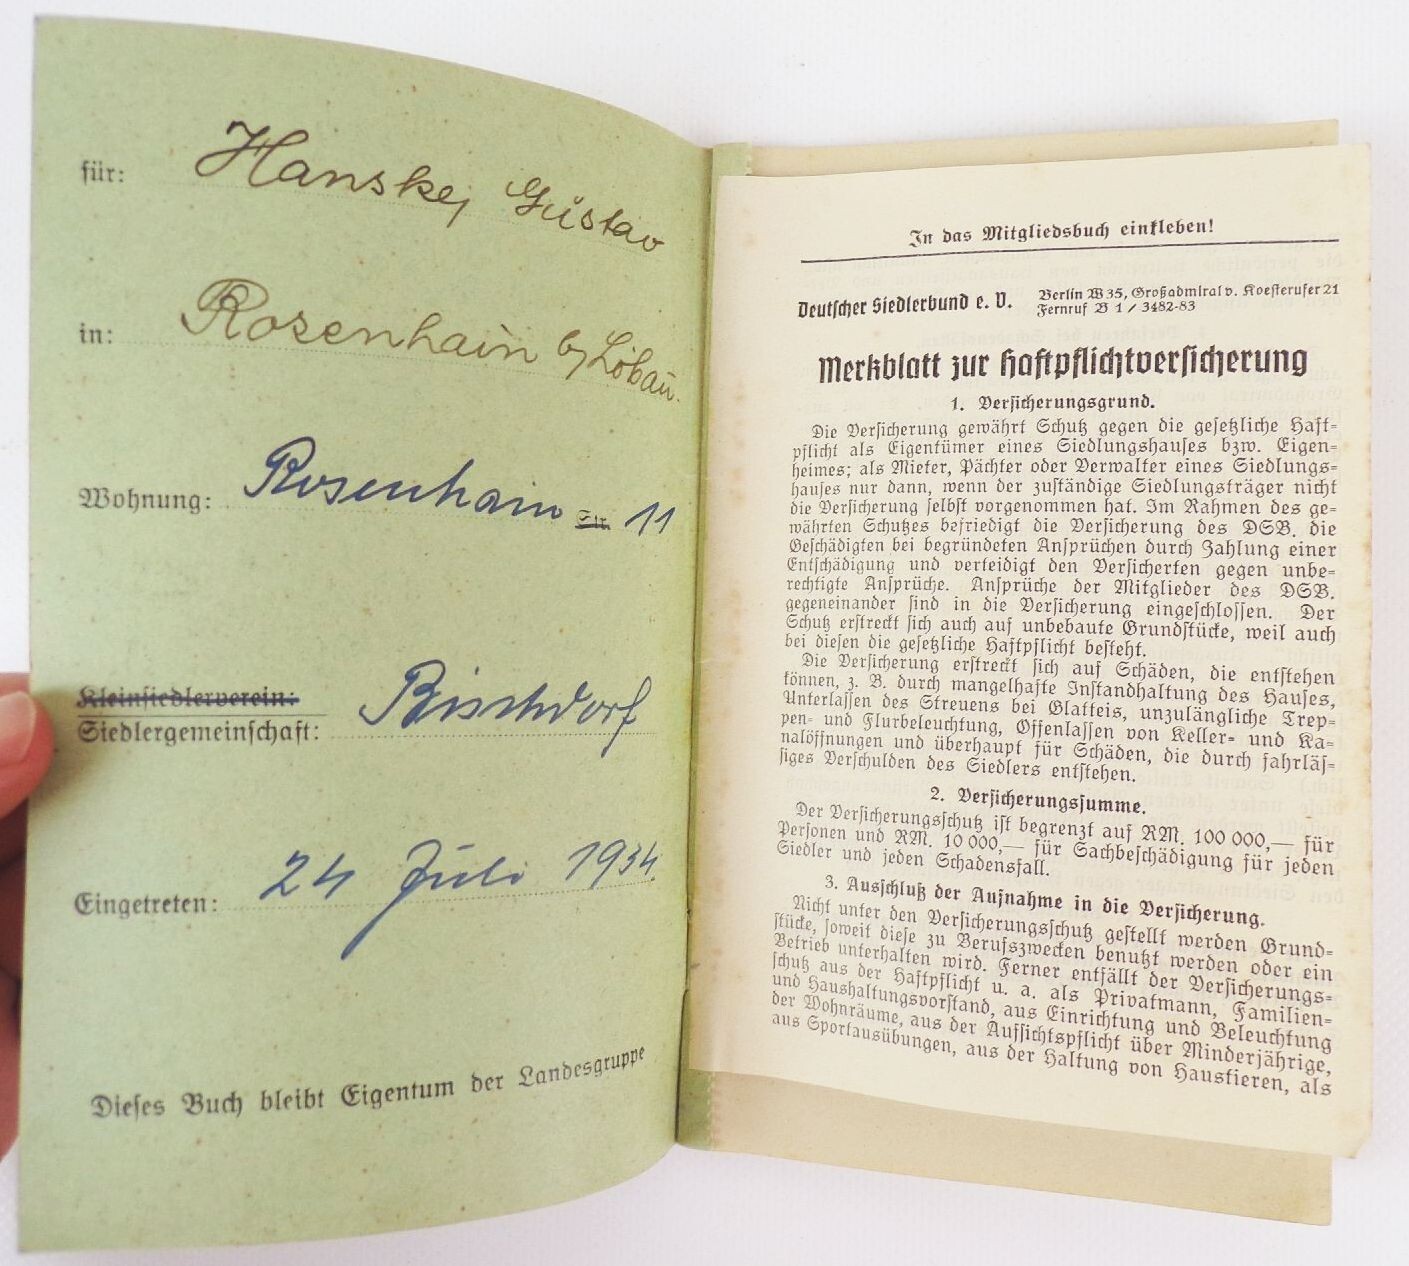 für: Hanske, Gustav
in: Rosenhain b/ Löbau.
Wohnung: Rosenhain Str. 11
Kleinsiedlerverein:
Siedlergemeinschaft: Bischdorf
Eingetreten: 24 Juli 1934.
Dieses Buch bleibt Eigentum der Landesgruppe
In das Mitgliedsbuch einkleben!
Deutscher Siedlerbund e. V.
Berlin W 35, Großadmiral v. Koesterufer 21
Fernruf B 1 / 3482-83
Merkblatt zur Haftpflichtversicherung
1. Versicherungsgrund.
Die Versicherung gewährt Schutz gegen die gesetzliche Haft-
pflicht als Eigentümer eines Siedlungshauses bzw. Eigen-
heimes; als Mieter, Pächter oder Verwalter eines Siedlungs-
hauses nur dann, wenn der zuständige Siedlungsträger nicht
die Versicherung selbst vorgenommen hat. Im Rahmen des ge-
währten Schutzes befriedigt die Versicherung des DSB. die
Geschädigten bei begründeten Ansprüchen durch Zahlung einer
Entschädigung und verteidigt den Versicherten gegen unbe-
rechtigte Ansprüche. Ansprüche der Mitglieder des DSB.
gegeneinander sind in die Versicherung eingeschlossen. Der
Schutz erstreckt sich auch auf unbebaute Grundstücke, weil auch
bei diesen die gesetzliche Haftpflicht besteht.
Die Versicherung erstreckt sich auf Schäden, die entstehen
können, z. B. durch mangelhafte Instandhaltung des Hauses,
Unterlassen des Streuens bei Glatteis, unzulängliche Trep-
pen- und Flurbeleuchtung, Offenlassen von Keller- und Ka-
nalöffnungen und überhaupt für Schäden, die durch fahrläs-
siges Verschulden des Siedlers entstehen.
2. Versicherungssumme.
Der Versicherungsschutz ist begrenzt auf RM. 100 000,— für
Personen und RM. 10 000,— für Sachbeschädigung für jeden
Siedler und jeden Schadensfall.
3. Ausschluß der Aufnahme in die Versicherung.
Nicht unter den Versicherungsschutz gestellt werden Grund-
stücke, soweit diese zu Berufszwecken benutzt werden oder ein
Betrieb unterhalten wird. Ferner entfällt der Versicherungs-
schutz aus der Haftpflicht u. a. als Privatmann, Familien-
und Haushaltungsvorstand, aus Einrichtung und Beleuchtung
der Wohnräume, aus der Aufsichtspflicht über Minderjährige,
aus Sportausübungen, aus der Haltung von Haustieren, als